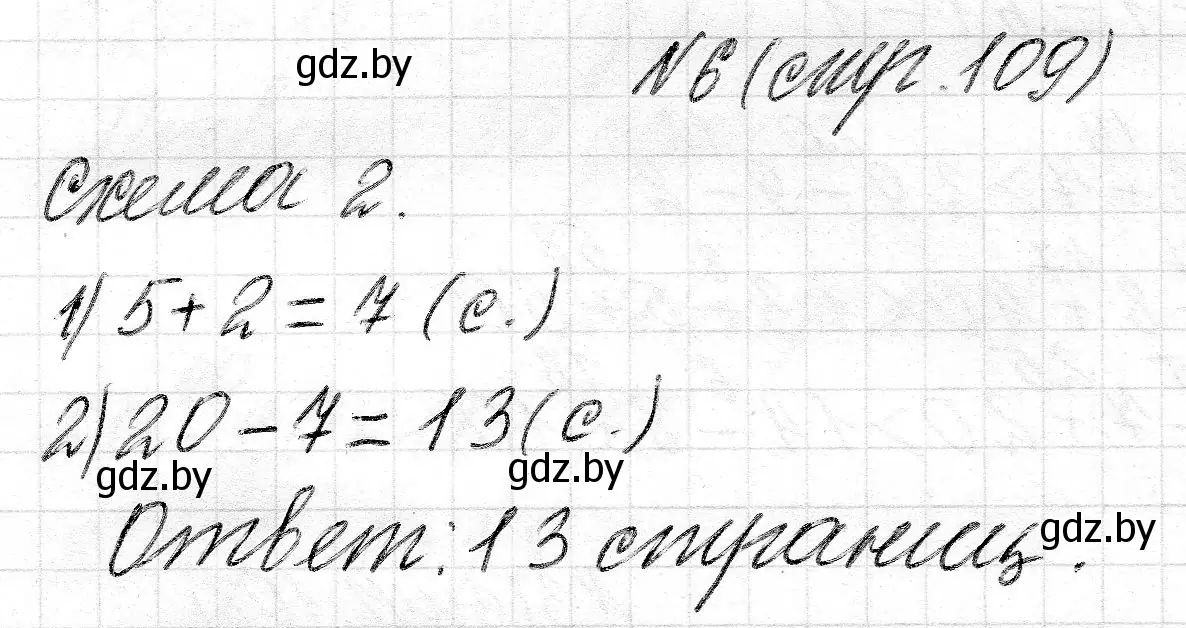 gdz.by
№6 (стр. 109)
Схема 2.
1) 5+2=7 (с.)
2) 20-7=13 (с.)
gdz.by
gdz.by
Ответ: 13 страниц.
gdz.by